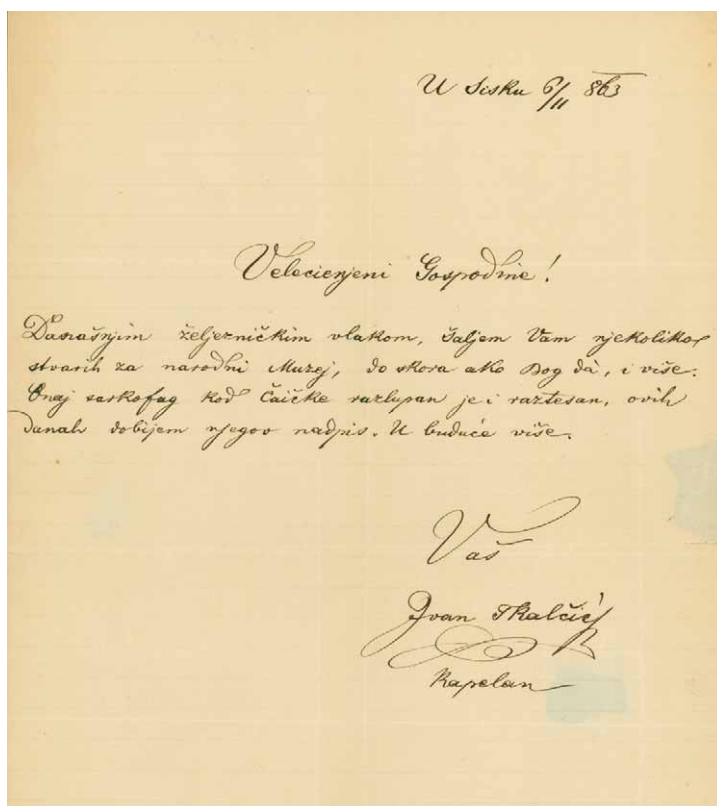 U Sisku 6/11 863
Velecienjeni Gospodine!
Današnjim željezničkim vlakom, šaljem Vam njekoliko
stvarih za narodni Muzej, do skora ako Bog dà, i više.
Onaj sarkofag kod Čaičke razlupan je i raztesan, ovih
danah dobijem njegov nadpis. U buduće više.
Vaš
Ivan Tkalčić
Kapelan